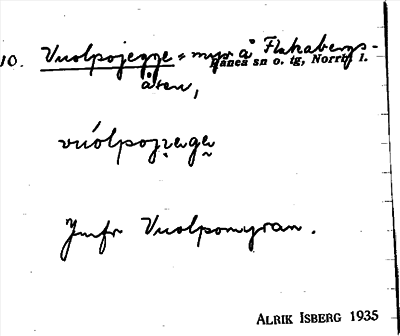 10. Vuolpojegge = myr å Flakabergs-
Råneå sn o. tg, Norrb. l.
åsen,
vuólpojεægæ
Jmfr Vuolpomyran.
ALRIK ISBERG 1935